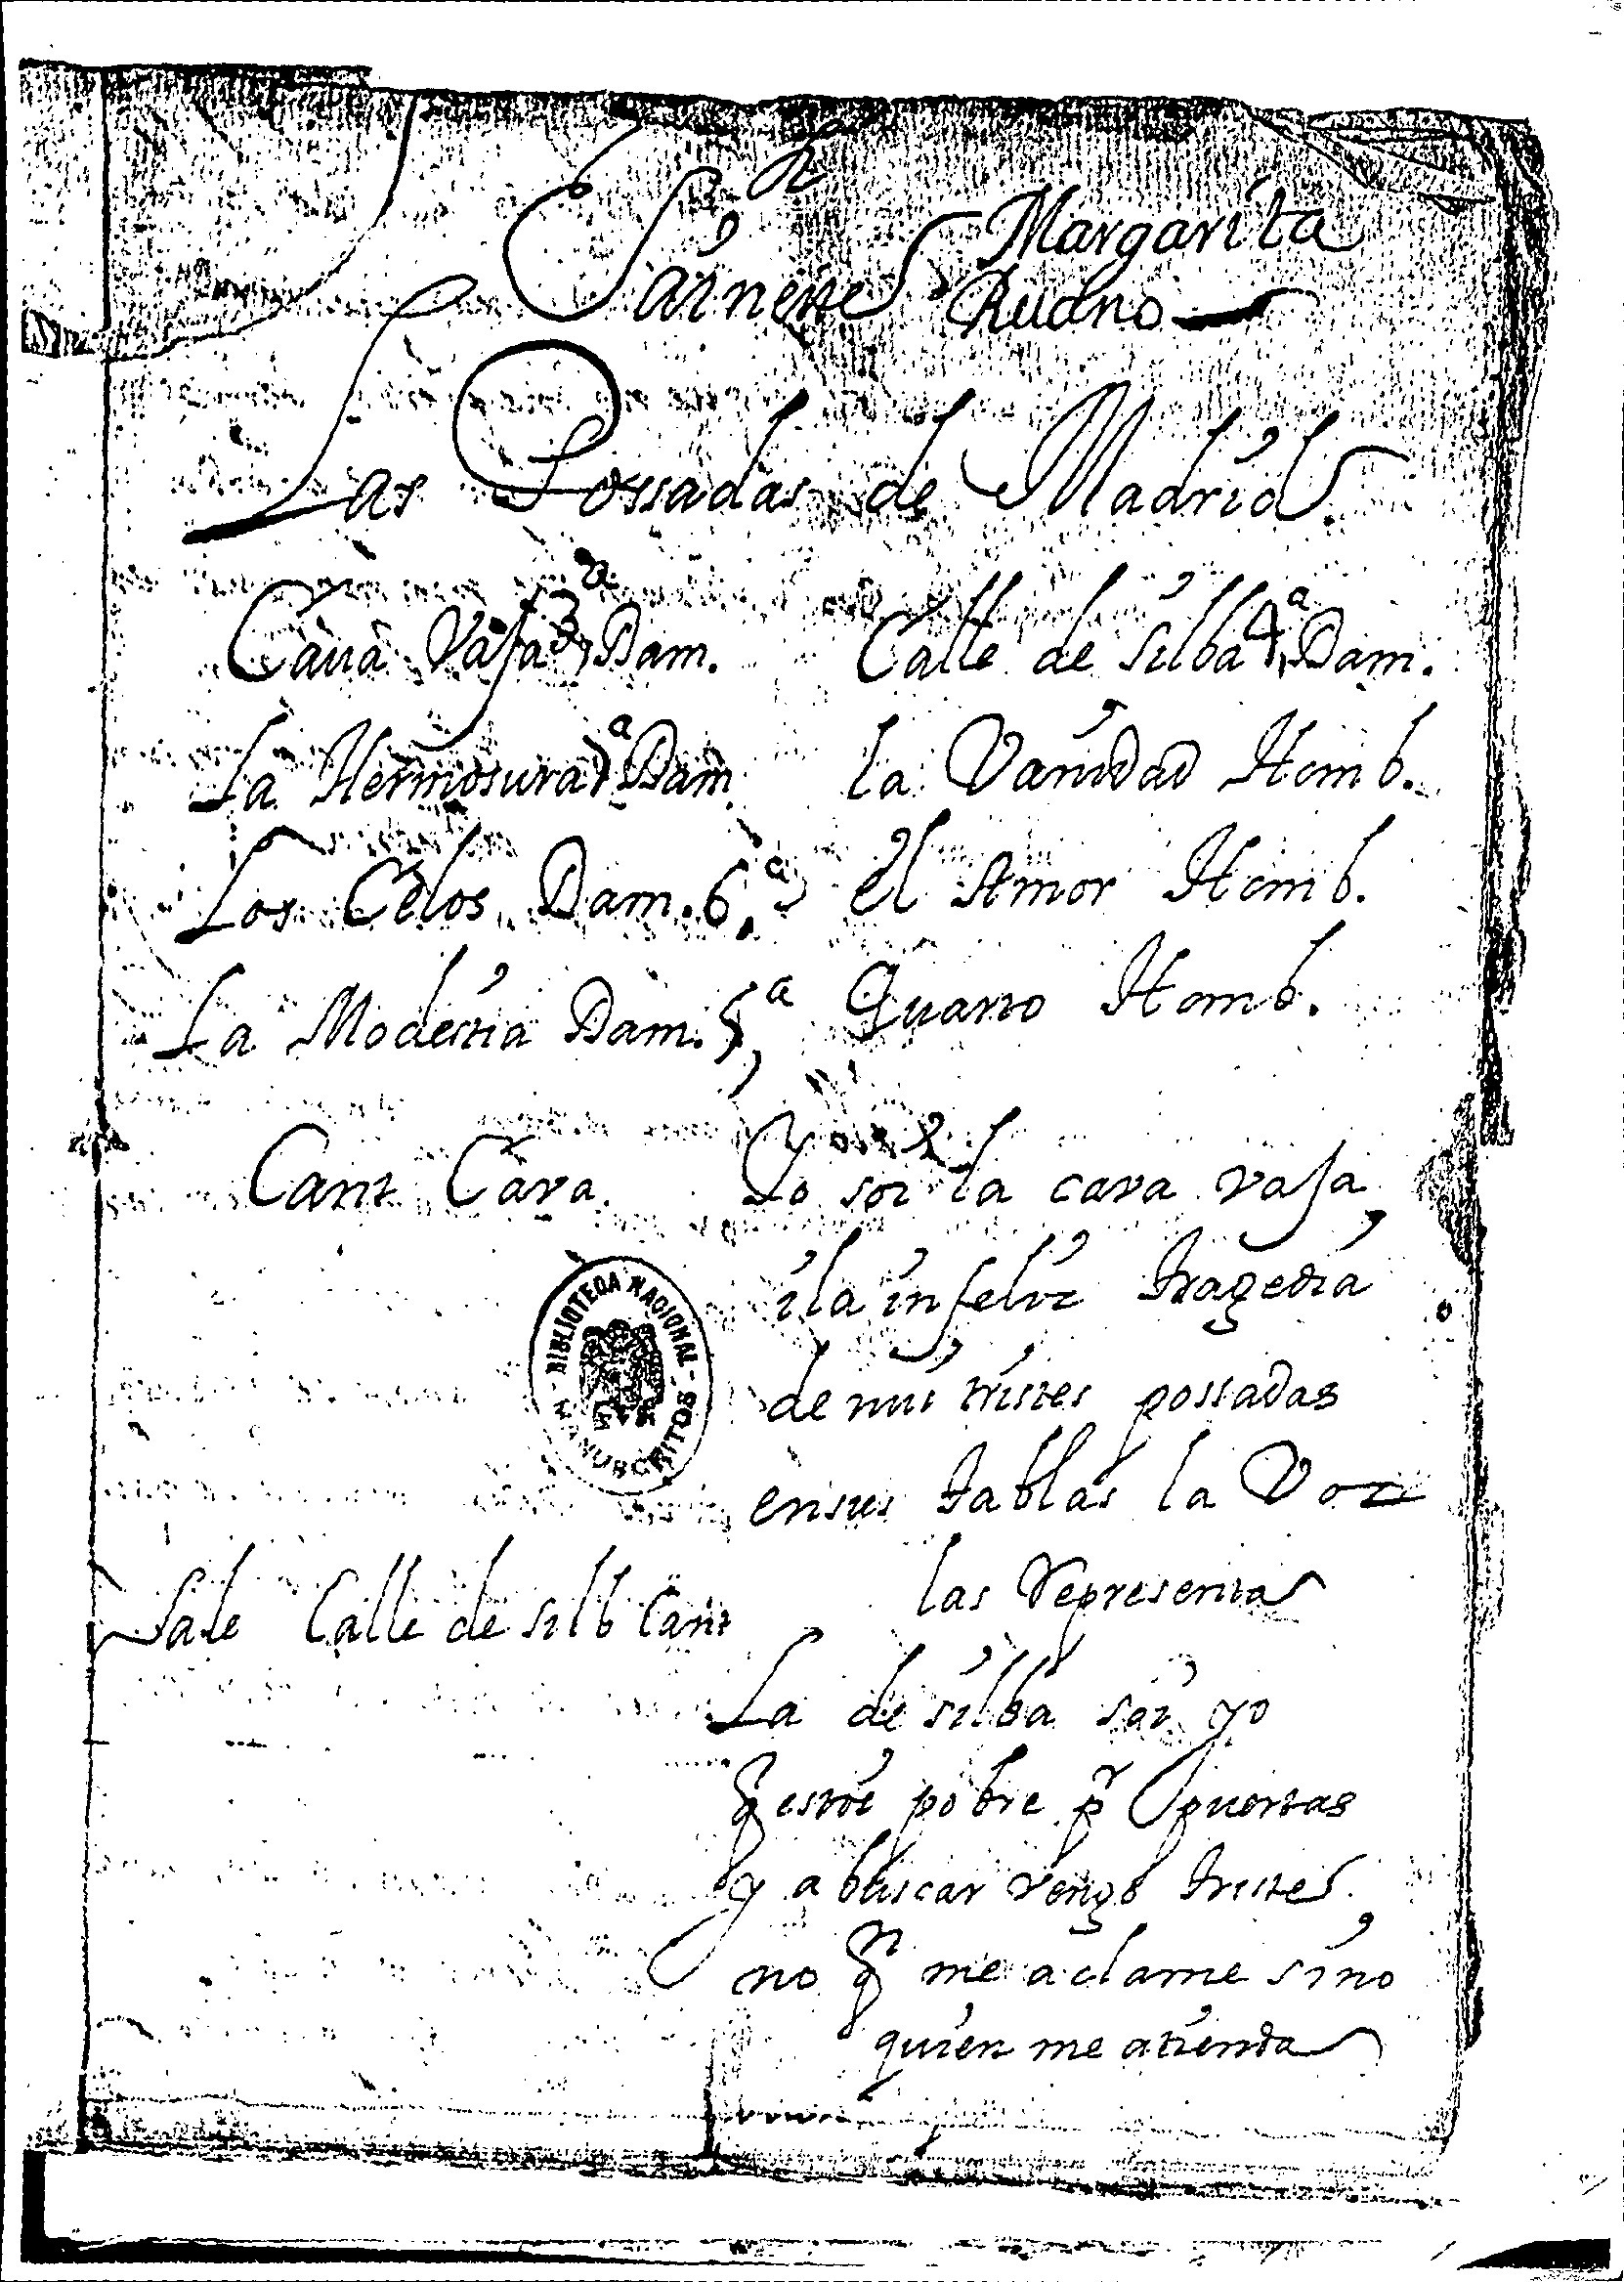 Sainete Margarita
Ruano
Las Possadas de Madrid
Caua Vaja 3ª Dam. Calle de silba 4ª Dam.
La Hermosura 1ª Dam. la Vanidad Homb.
Los Celos Dam. 6.ª el Amor Homb.
La Modestia Dam. 5ª Quarto Homb.
Cant Cava. Yo soi la cava vaja
i la infeliz tragedia
de mis tristes possadas
en sus tablas la Voz
las representa
Sale Calle de silb Cant
La de silba soi yo
q estoi pobre pr puertas
y a buscar vengo triste
no qn me aclame sino
quien me atienda
BIBLIOTECA NACIONAL
MANUSCRITOS